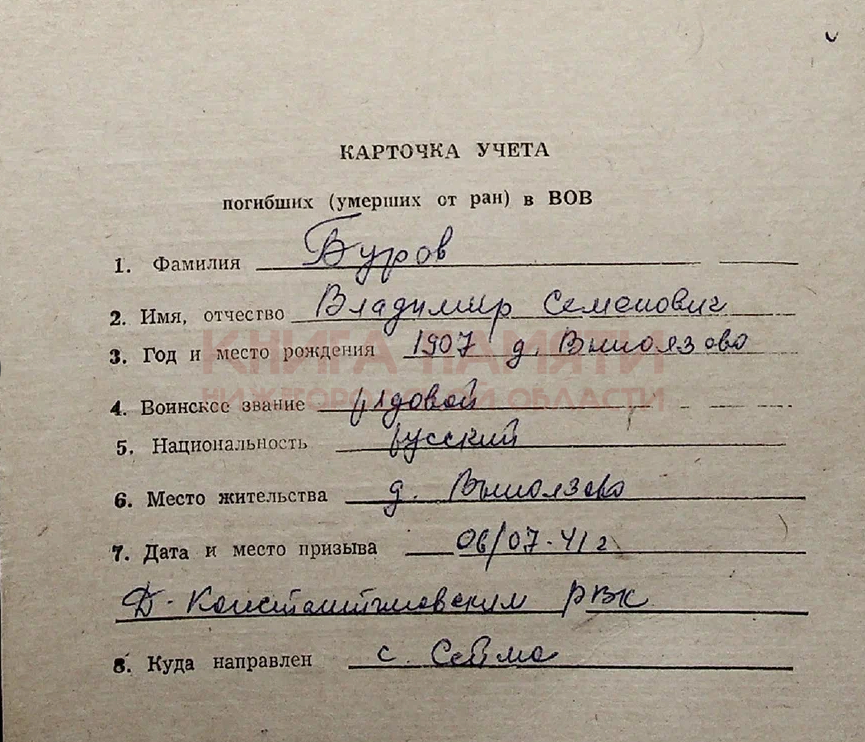 КАРТОЧКА УЧЕТА
погибших (умерших от ран) в ВОВ
1. Фамилия Буров
2. Имя, отчество Владимир Семенович
КНИГА ПАМЯТИ
3. Год и место рождения 1907 д.
НИЖЕГОРОДСКОЙ ОБЛАСТИ
4. Воинское звание рядовой
5. Национальность русский
6. Место жительства д.
7. Дата и место призыва 06/07-41 г
Д-Константиновским РВК
8. Куда направлен с. Сейма